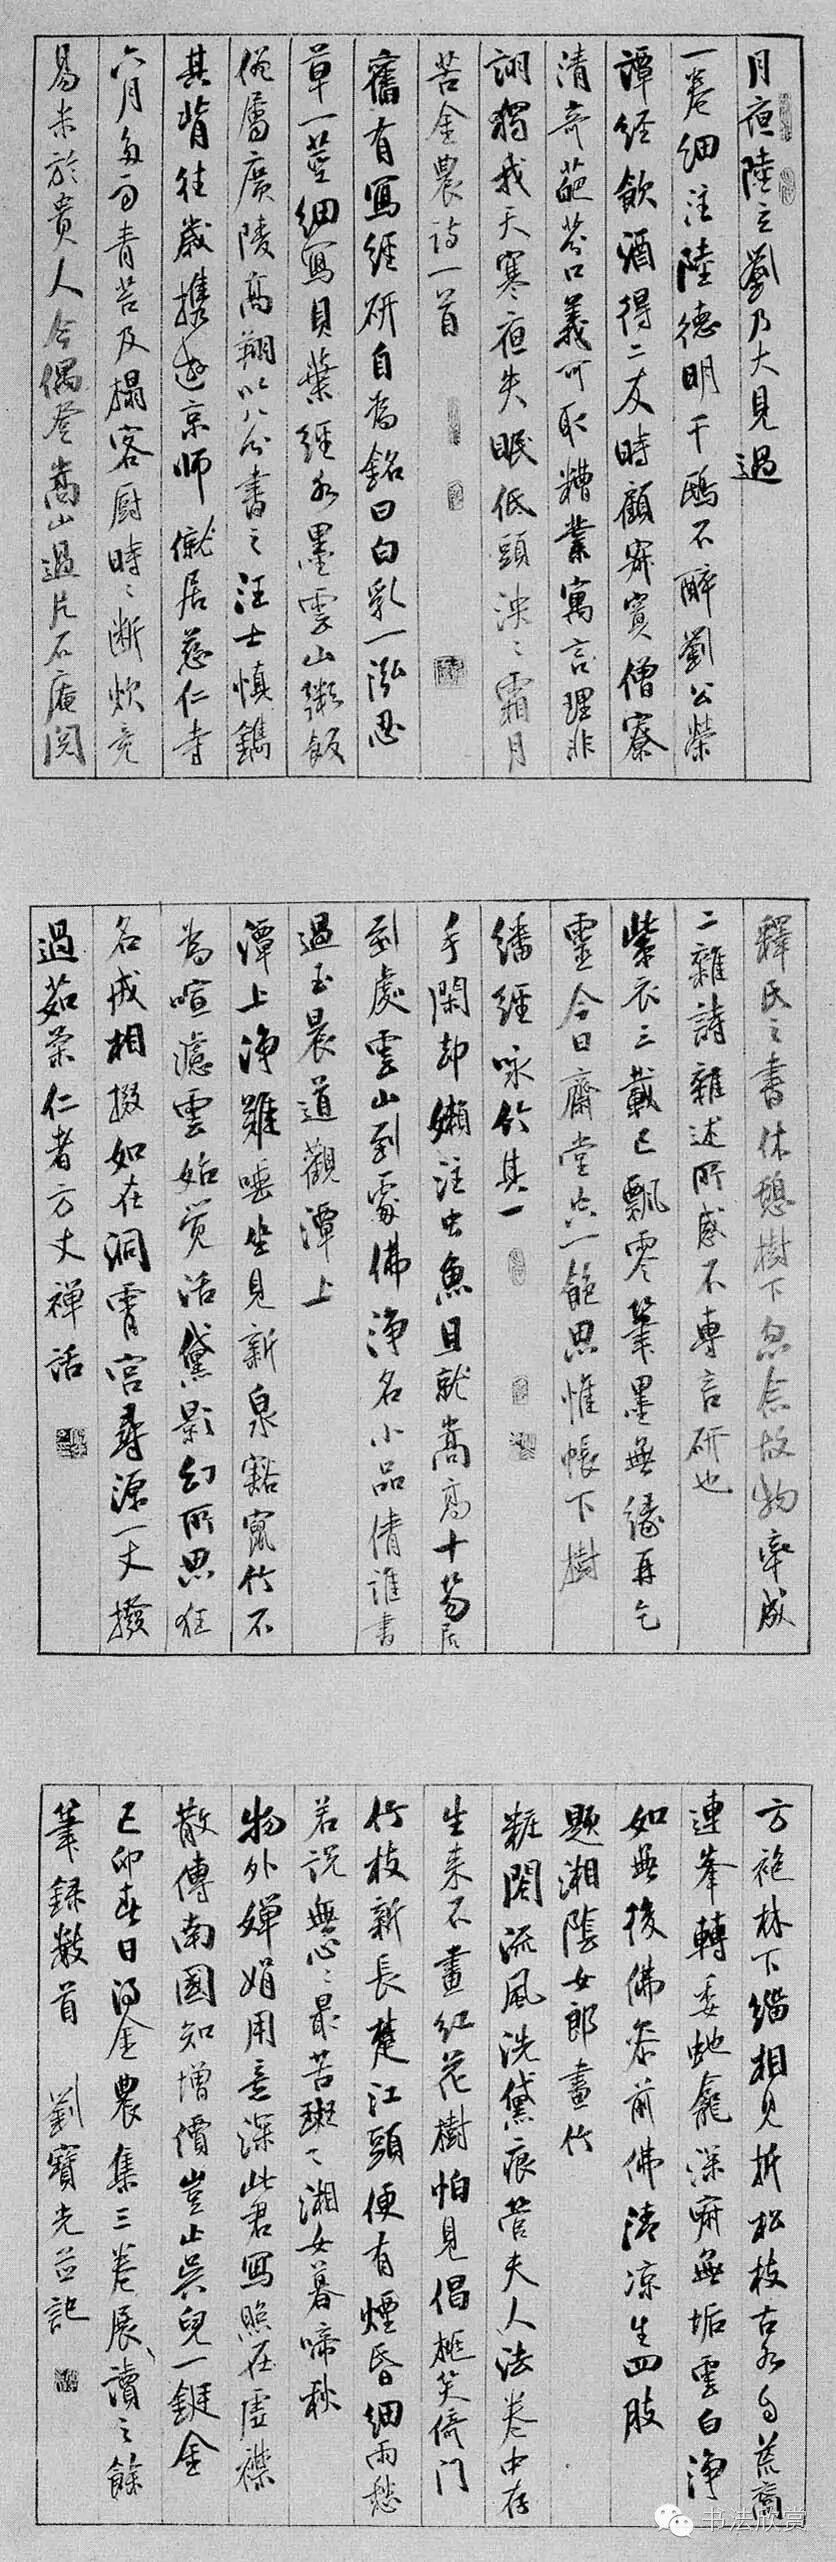 月夜陸立劉乃大見過
一卷細注陸德明千鴟不醉劉公榮
譚經飲酒得二友時顧寂寞僧寮
清奇葩芬口義可取糟業寓言理非
詡獨我天寒夜失眠低頭泱泱霜月
苦金農詩一首
舊有寫經研自為銘曰白乳一泓忍
草一莖細寫貝葉經水墨雲山粥飯
僧屬廣陵高翔以八分書之汪士慎鐫
其背往歲攜遊京師僦居慈仁寺
六月多雨青苔及榻客廚時時斷炊竟
易米於貴人今偶登嵩山過片石庵閱
釋氏之書休憩樹下忽念故物率成
二雜詩雜述所感不專言研也
紫衣三載已飄零筆墨無緣再乞
靈今日齋堂共一飽思惟帳下樹
繙經咏竹其一
手閑却嬾注虫魚且就嵩高十笏居
到處雲山到處佛淨名小品倩誰書
過玉晨道觀潭上
潭上淨難唾坐見新泉豁寵竹不
為喧濾雲始覺活黛影幻所思狂
名戒相掇如在洞霄宮尋源一丈撥
過茹荼仁者方丈禪話
方袍林下緇相見折松枝古水自荒商
連峯轉委虵龕深齋無垢雲白淨
如無後佛參前佛清涼生四肢
題湘陰女郎畫竹
粧閣流風洗黛痕管夫人法卷中存
生來不畫紅花樹怕見倡桃笑倚門
竹枝新長楚江頭便有煙昏細雨愁
若說無心心最苦斑斑湘女暮啼秋
物外嬋娟用意深此君寫照在虛襟
散傳南國知增價豈止吳兒一鋌金
己卯春日得金農集三卷展讀之餘
筆錄數首 劉寶光並記
书法欣赏